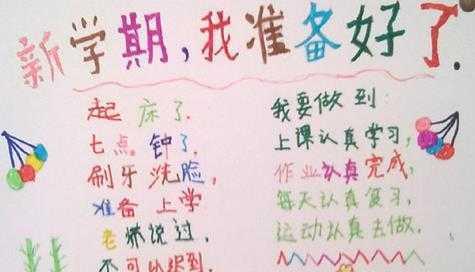 新学期,我准备好了.
起床了.
七点钟了.
刷牙洗脸,
准备上学
老师说过,
不可以迟到.
我要做到:
上课认真学习,
作业认真完成,
每天认真复习,
运动认真去做.